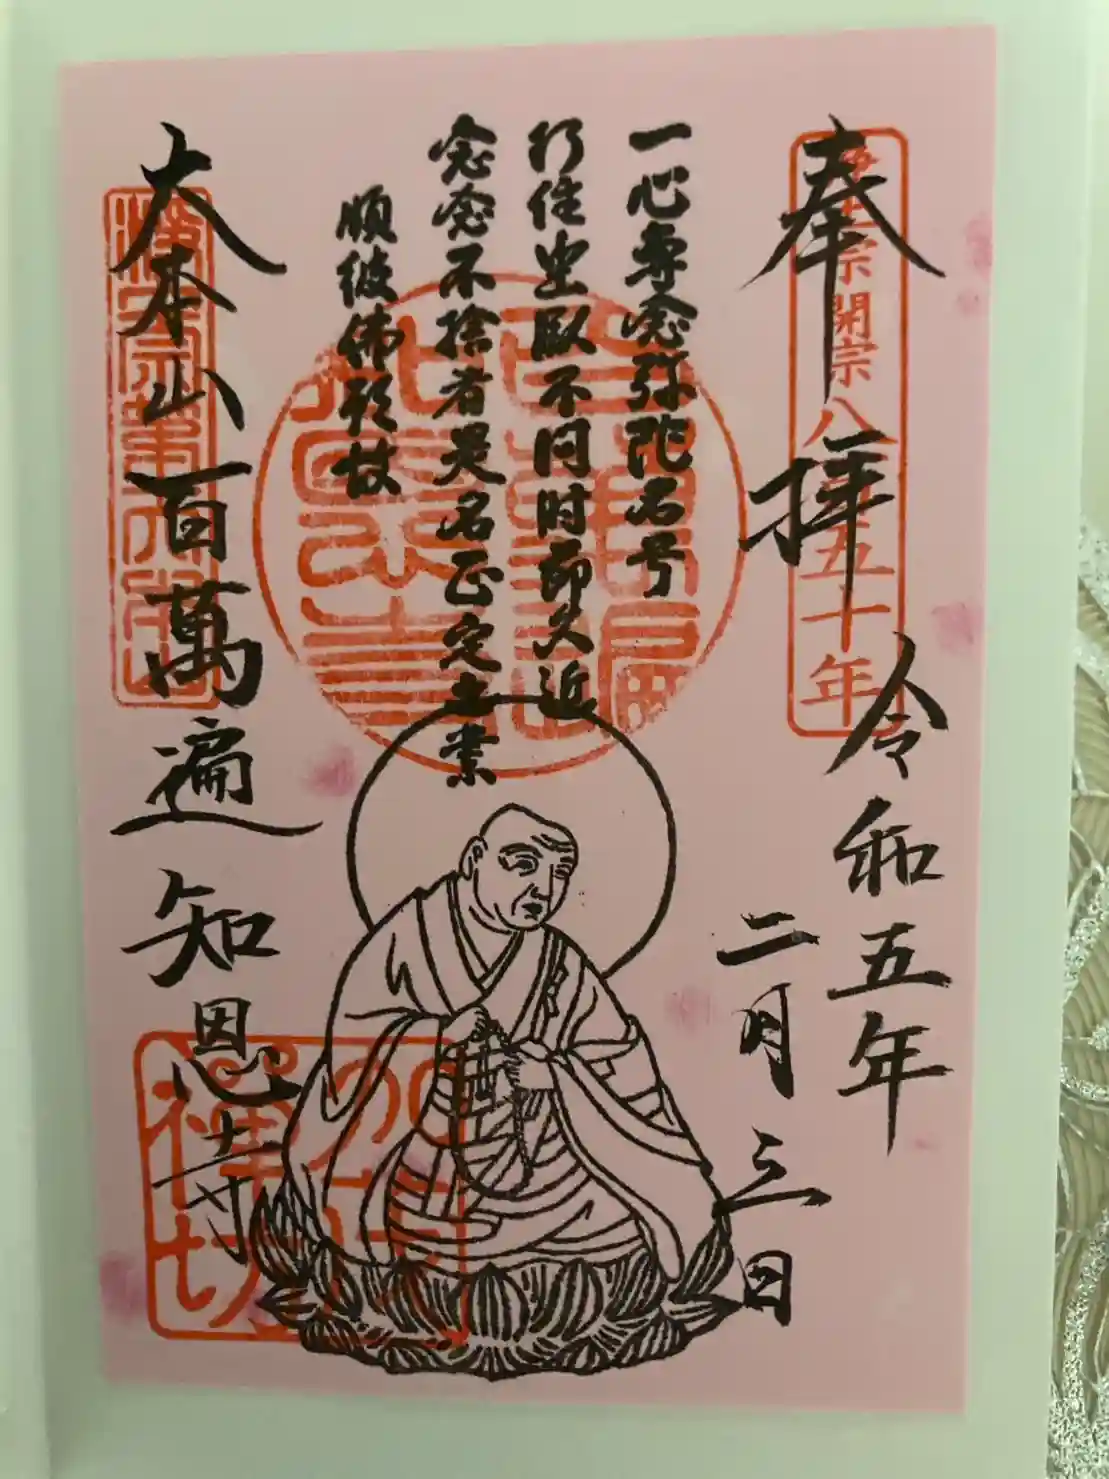 奉拝
浄土宗開宗八五十年
令和五年
二月三日
一心専念弥陀名号
行住坐臥不問时節久近
念念不捨者是名正定之業
順彼佛願故
大本山百萬遍知恩寺